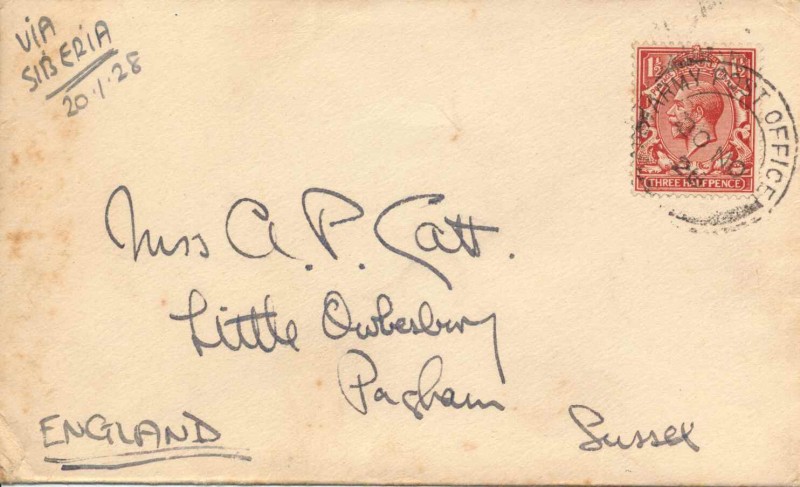 VIA
SIBERIA
20·1·28
1½
ARMY POST OFFICE
30 NO
28
THREE HALFPENCE
Miss A. P. Catt.
Little
Pagham
Sussex
ENGLAND